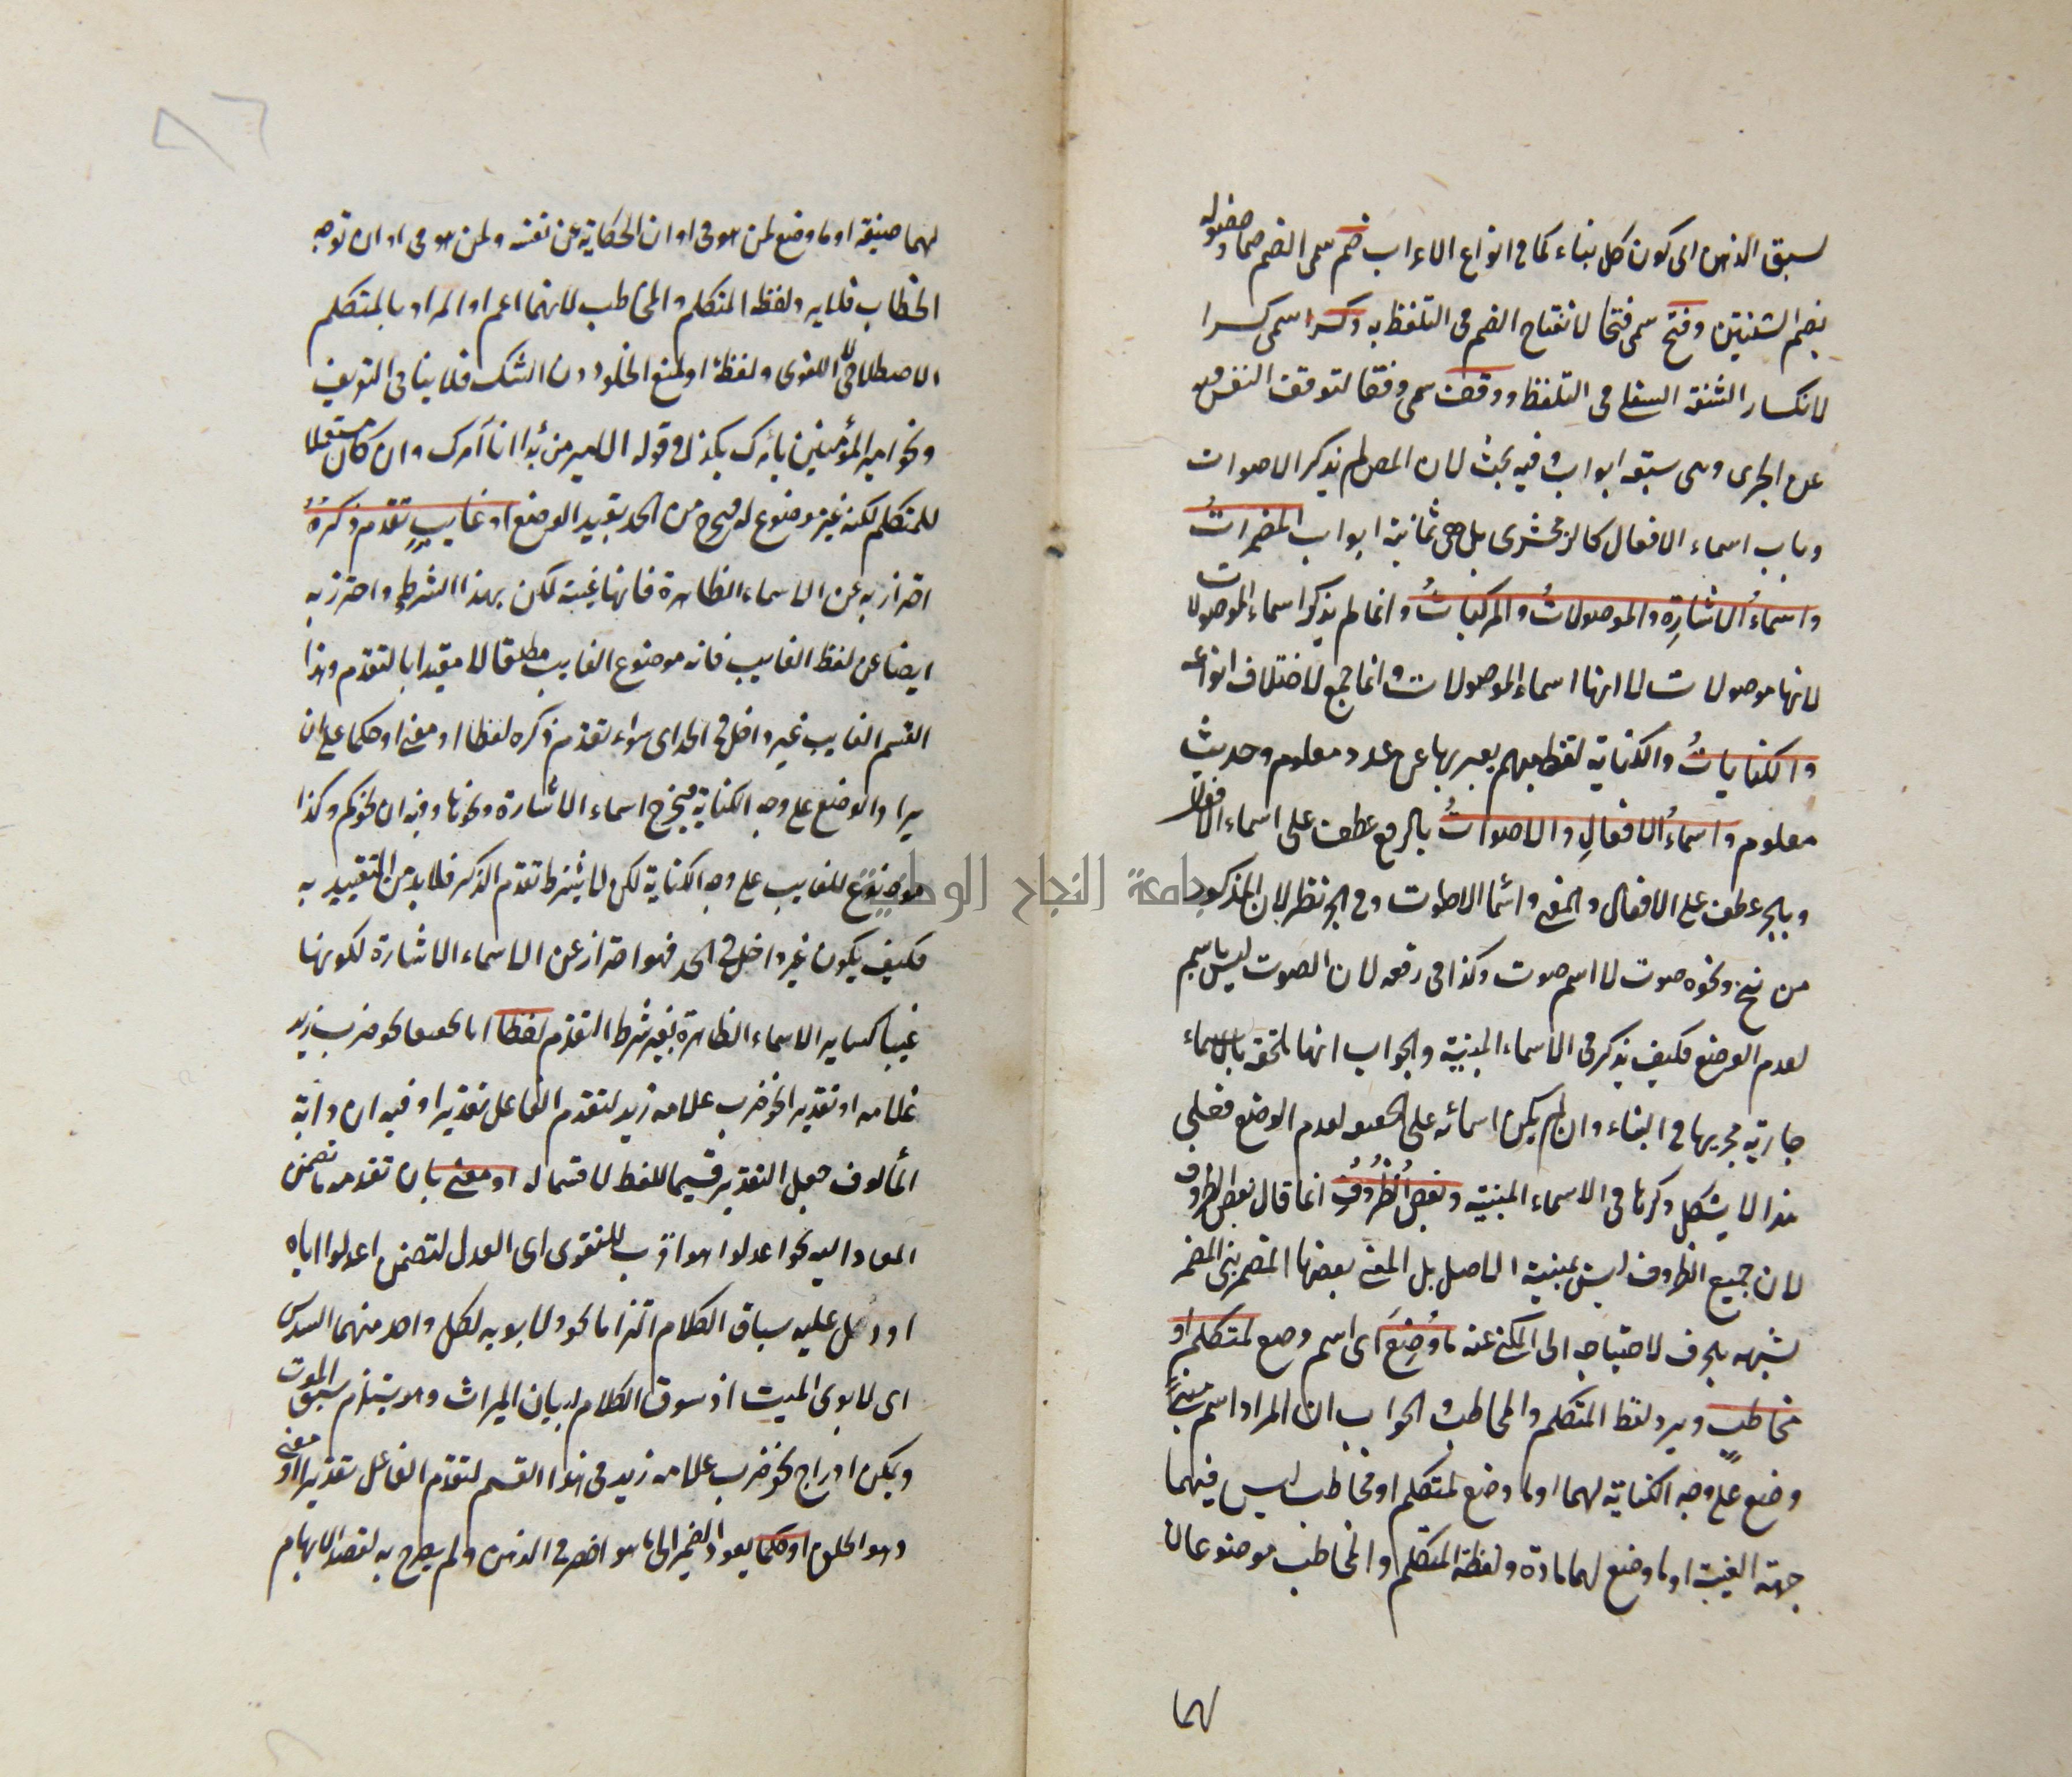 لسبق الذهن الى كون كل بناء كما فى انواع الاعراب ضم سمى الضم ضما لحصوله
بضم الشفتين وفتح سمى فتحا لانفتاح الفم فى التلفظ به وكسر اسمى كسرا
لانكسار الشفة السفلى فى التلفظ ووقف سمى وقفا لتوقف النفس فيه
عن الجرى وهى ستة ابواب وفيه بحث لان المص لم يذكر الاصوات
وباب اسماء الافعال كالزمخشرى بل هى ثمانية ابواب المضمرات
واسماء الاشارة والموصولات والمركبات وانما لم يذكر اسماء الموصولات
لانها موصولات لا انها اسماء الموصولات وانما جمع لاختلاف انواعه
والكنايات والكناية لفظ مبهم يعبر بها عن عدد معلوم وحديث
معلوم واسماء الافعال والاصوات بالرفع عطف على اسماء الافعال
وبالجر عطف على الافعال والمعنى واسماء الاصوات وفى الجر نظر لان المذكور
من نخ ونحوه صوت لا اسم صوت وكذا فى رفعه لان الصوت ليس باسم
لعدم الوضع فكيف يذكر فى الاسماء المبنية والجواب انها ملحقة بالاسماء
جارية مجريها فى البناء وان لم يكن اسمائه على لعدم الوضع فعلى
هذا لا يشكل ذكرها فى الاسماء المبنية وبعض الظروف انما قال بعض الظروف
لان جميع الظروف ليس بمبنية الاصل بل المعنى بعضها المضمر بنى المضمر
لشبهه بالحرف لاحتياجه الى المكنى عنه ما وضع اى اسم وضع لمتكلم او
مخاطب ويرد لفظ المتكلم والمخاطب والجواب ان المراد اسم مبنى
وضع على وجه الكناية لهما او ما وضع لمتكلم او مخاطب ليس فيهما
جهة الغيبة او ما وضع لهما مادة ولفظة المتكلم والمخاطب موضوعان
لهما
لهما صيغة او ما وضع لمن هو فى اوان الحكاية عن نفسه ولمن هو فى اوان توجه
الخطاب فلا يرد لفظ المتكلم والمخاطب لانهما اعم او المراد بالمتكلم
الاصطلاحى لا اللغوى ولفظة او لمنع الخلو دون الشك فلا ينافى التعريف
ونحو امير المؤمنين يأمرك بكذا فى قوله الامير من بدا انا آمرك وان كان مستعملا
للمتكلم لكنه غير موضوع له فيخرج من الحد بقيد الوضع او غايب تقدم ذكره
احتراز به عن الاسماء الظاهرة فانها غيبة لكن بهذا الشرط واحترز به
ايضا عن لفظ الغايب فانه موضوع الغايب مطلقا لا مقيدا بالتقدم وهذا
القسم الغايب غير داخل فى الحد اى سواء تقدم ذكره لفظا او معنى او حكما على ان
يراد الوضع على وجه الكناية فيخرج اسماء الاشارة ونحوها وفيه ان نحو كم وكذا
موضوع للغايب على وجه الكناية لكن لا يشترط تقدم الذكر فلا بد من التقييد به
فكيف يكون غير داخل فى الحد فهو احتراز عن الاسماء الاشارة لكونها
غيبا كساير الاسماء الظاهرة بغير شرط التقدم لفظا اما نحو ضرب زيد
غلامه او تقديرا نحو ضرب غلامه زيد لتقدم الفاعل تقديرا وفيه ان دابة
المألوف جعل التقدير قسيما للفظ لا قسما له او معنى بان تقدمه ما تضمن
المعاد اليه نحو اعدلوا هو اقرب للتقوى اى العدل لتضمن اعدلوا اياه
او دل عليه سياق الكلام التزاما نحو ولابويه لكل واحد منهما السدس
اى لابوى الميت اذ سوق الكلام لبيان الميراث وهو يستلزم سبق الموت
ويمكن ادراج نحو ضرب غلامه زيد فى هذا القسم لتقدم الفاعل تقديرا او معنى
وهو او حكما يعود الضمير الى ما هو احضر فى الذهن ولم يصرح به لقصد الابهام